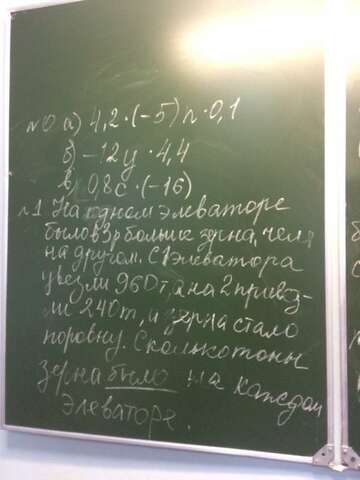 №0 а) 4,2·(-5)n·0,1
б) -12y·4,4
в) 0,8c·(-16)
№1 На одном элеваторе
было в 3 р больше зерна, чем
на другом. С 1 элеватора
увезли 960т, а на 2 привез-
ли 240т, и зерна стало
поровну. Сколько тонн
зерна было на каждом
элеваторе.